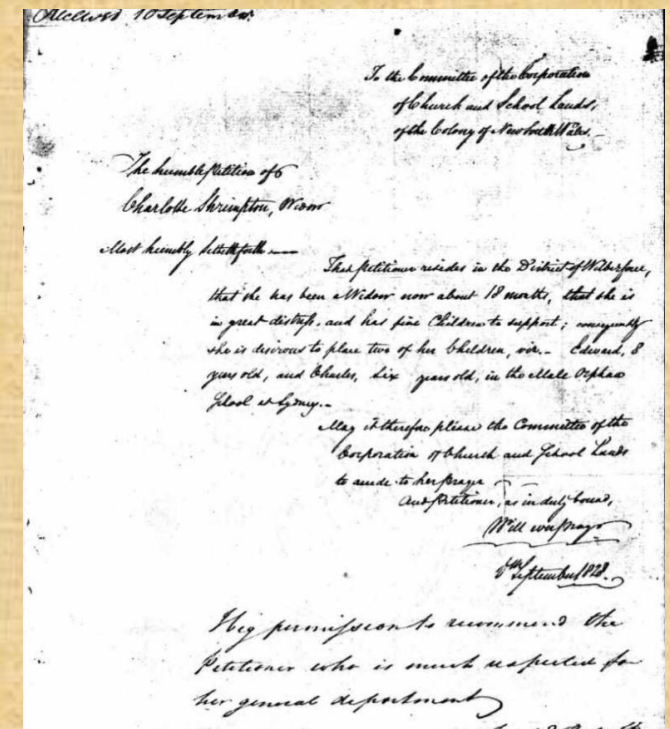 Received 10 September
To the Committee of the Corporation
of Church and School Lands,
of the Colony of New South Wales.
The humble Petition of
Charlotte Shrimpton, Widow
Most humbly setteth forth
That Petitioner resides in the District of Wilberforce,
that she has been a Widow now about 18 months, that she is
in great distress, and has five Children to support; consequently
she is desirous to place two of her Children, viz. Edward, 8
years old, and Charles, Six years old, in the Male Orphan
School at Sydney.
May it therefore please the Committee of the
Corporation of Church and School Lands
to accede to her prayer
And Petitioner, as in duty bound,
Will ever pray
September 1828.
I beg permission to recommend the
Petitioner who is much respected for
her general deportment